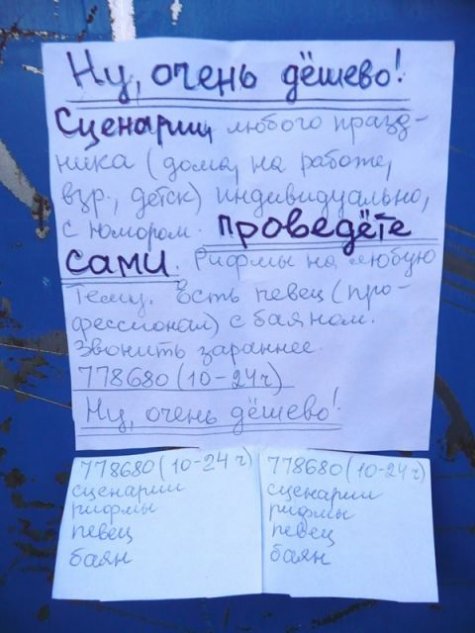 Ну, очень дёшево!
Сценарии любого празд-
ника (дома, на работе,
взр., детск) индивидуально,
с юмором. проведёте
сами. Рифмы на любую
тему. Есть певец (про-
фессионал) с баяном.
Звонить зараннее.
778680 (10-24 ч)
Ну, очень дёшево!
778680 (10-24 ч)
сценарии
рифмы
певец
баян
778680 (10-24 ч)
сценарии
рифмы
певец
баян